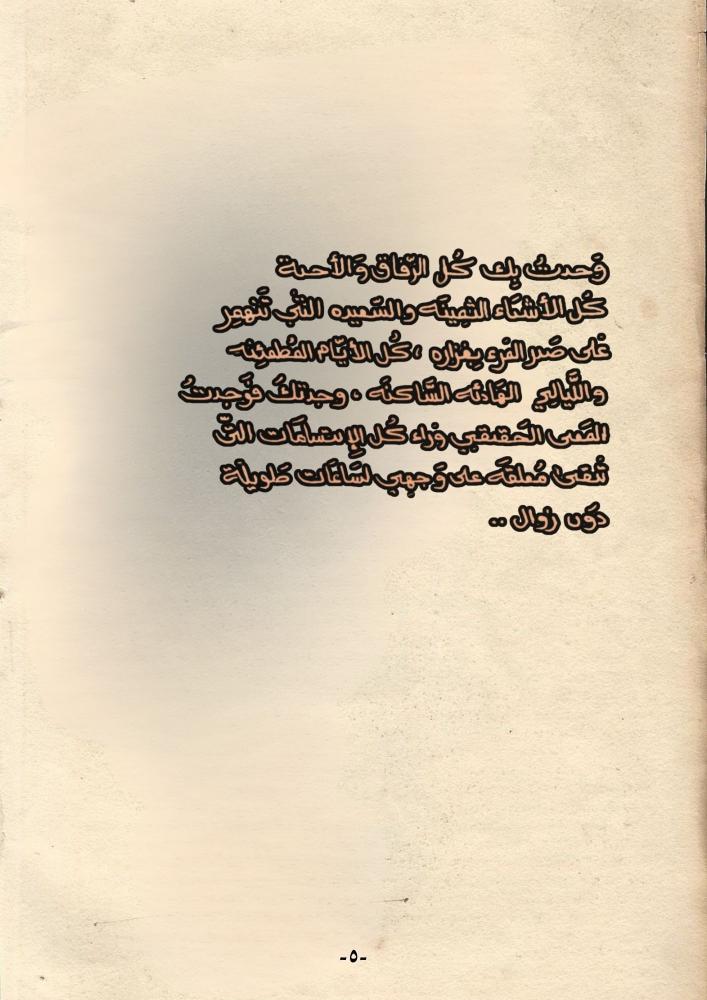 وَجدتُ بِك كُل الرّفاق وَالأحبة
كُل الأشيَاء الثمِينَه والسَعيده التْي تَنهمِر
عَلى صَدر المَرء بِغزاره ، كُل الأيّام المُطمئِنه
واللَّيالِي الهَادئه السَّاكنَه ، وجدتكَ فوَجدتُ
المَعنى الحَقيقي وَراء كُل الإِبتسامَات التّي
تْبقىٰ مُعلقَة على وَجهِي لسَاعَات طَويلَة
دوَن زوال ..
-٥-